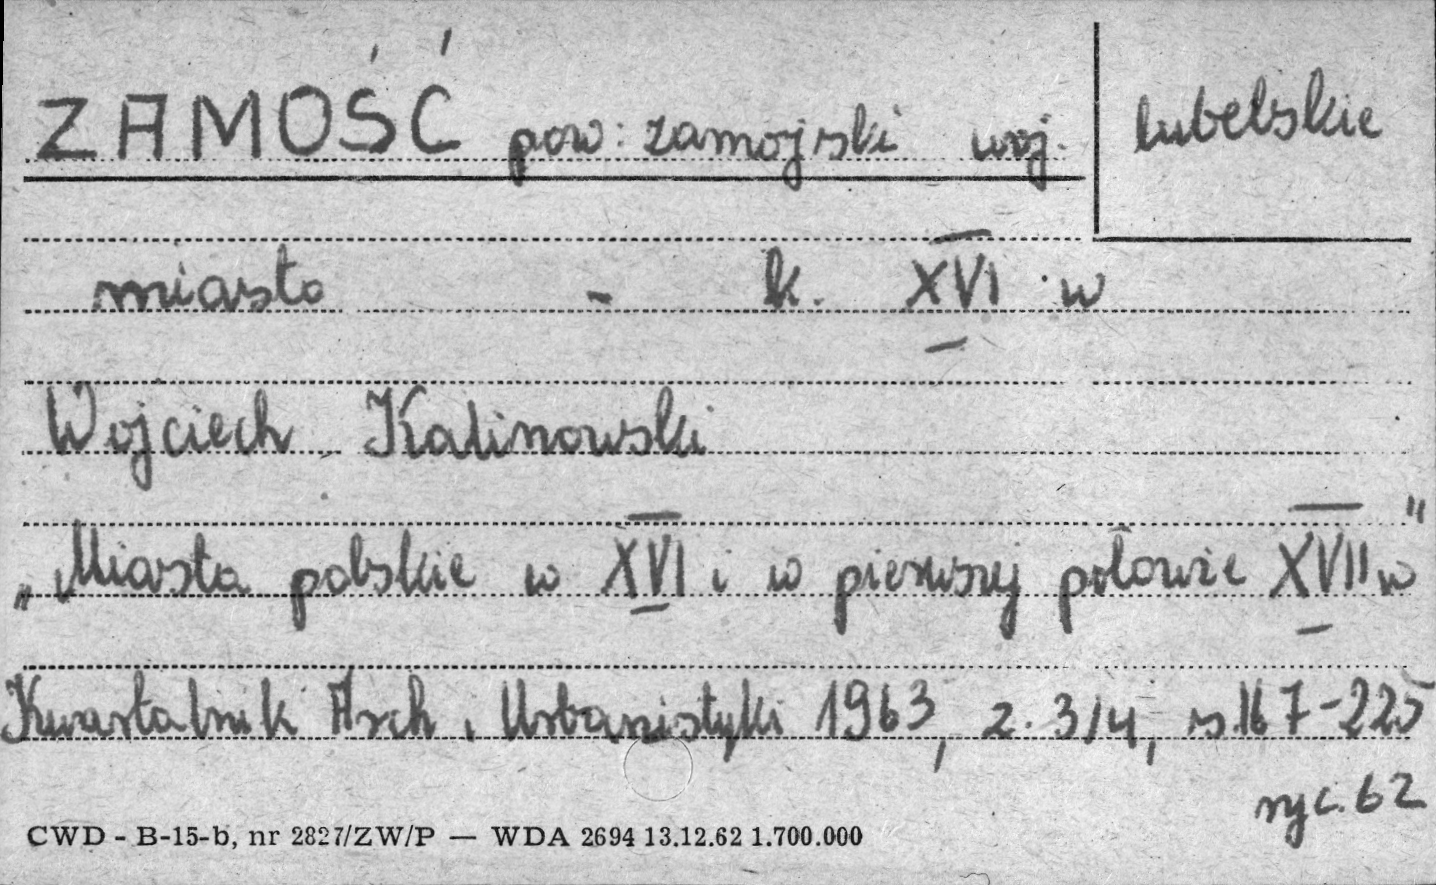 ZAMOŚĆ pow: zamojski woj. lubelskie
miasto - k. XVI w
Wojciech Kalinowski
„Miasta polskie w XVI i w pierwszej połowie XVII w"
Kwartalnik Arch i Urbanistyki 1963, z. 3/4, s. 167-225
ryc. 62
CWD - B-15-b, nr 2827/ZW/P — WDA 2694 13.12.62 1.700.000